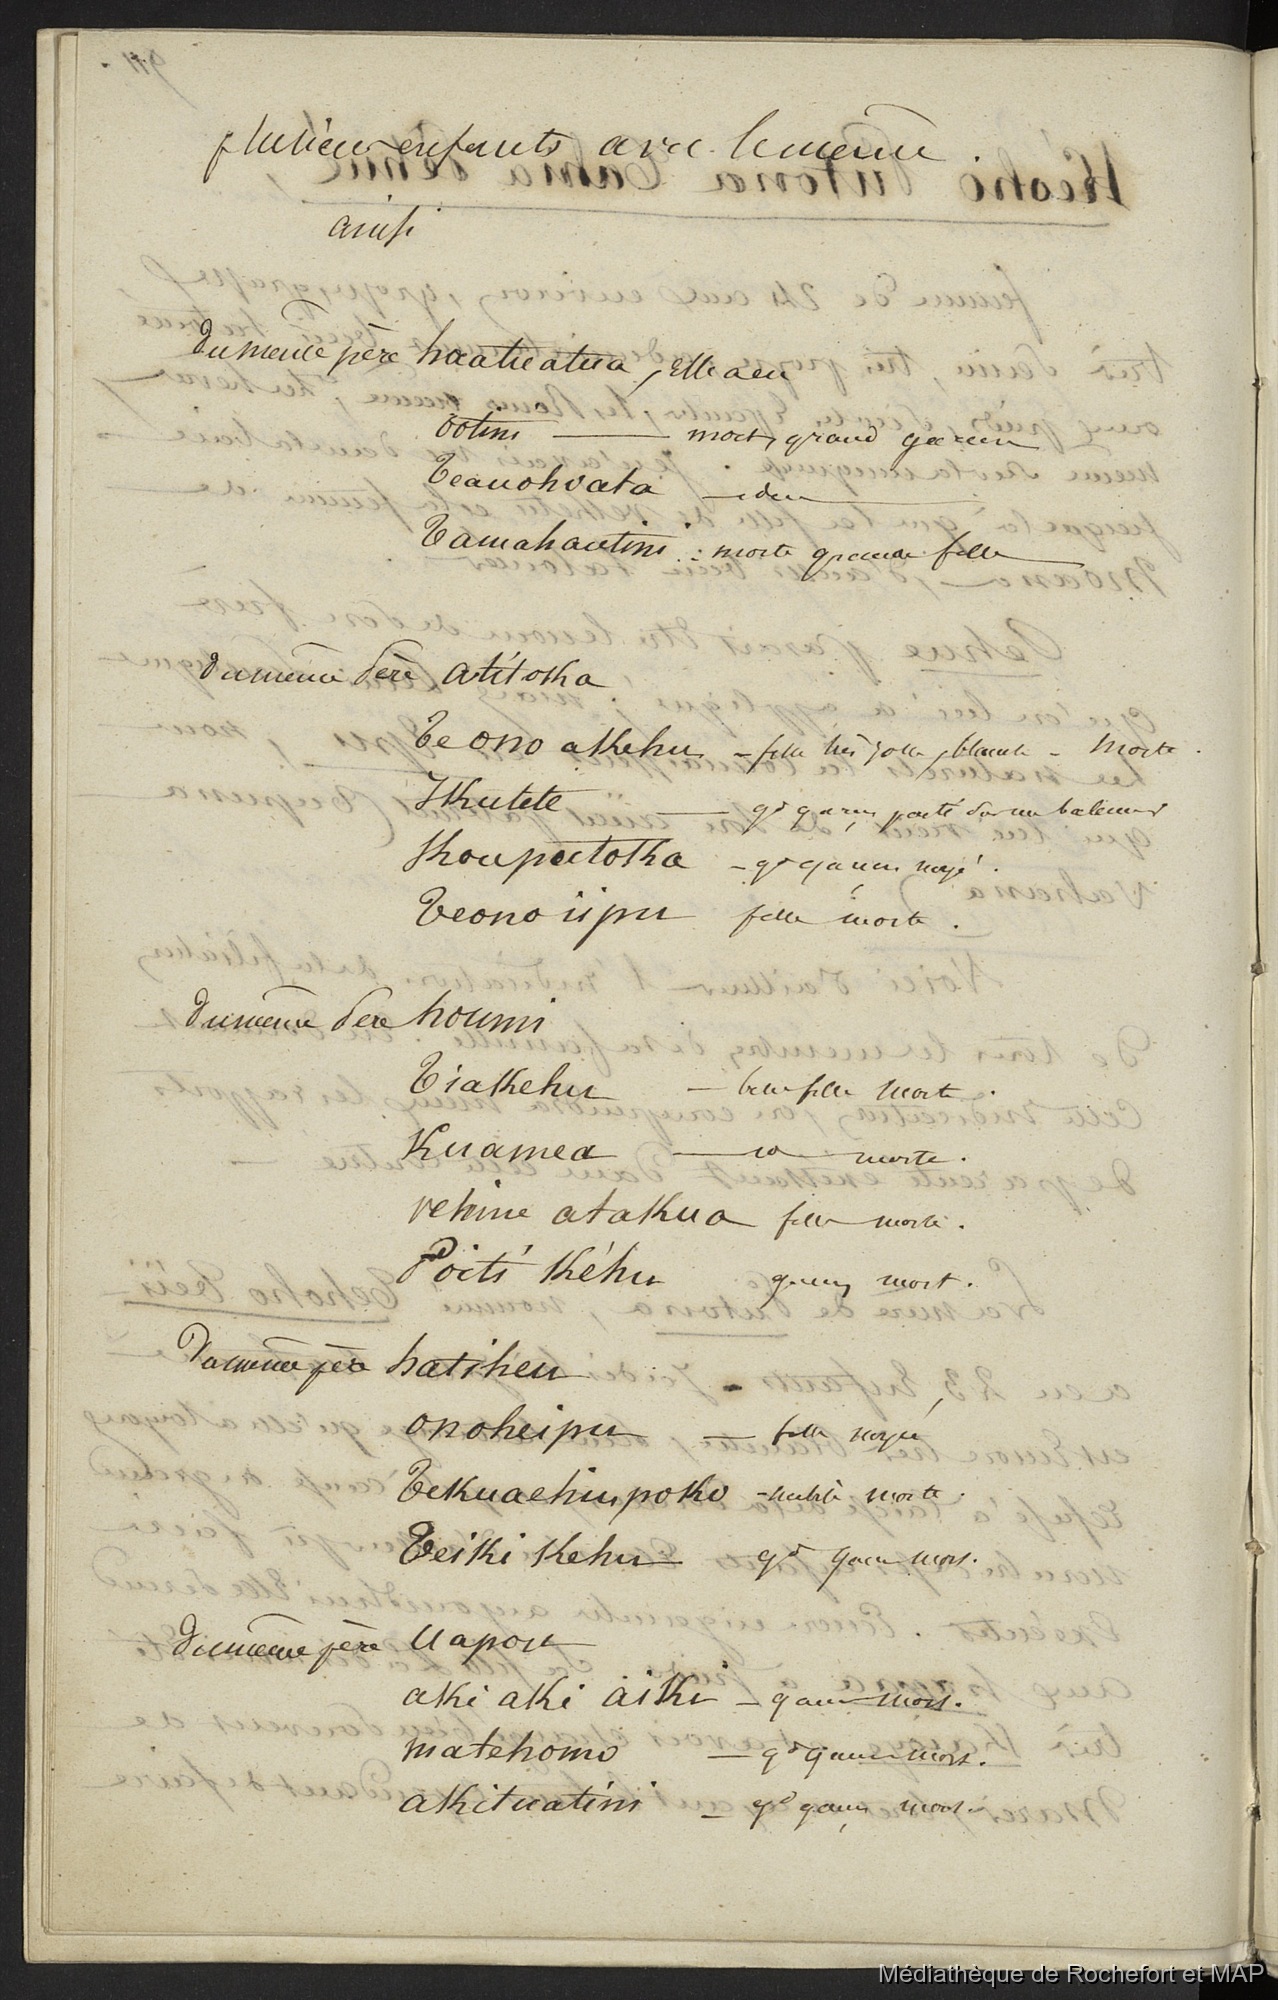 plusieurs enfants avec le même.
ainsi
du même père haatuatua, Elle a eu
ootini — mort, grand garcon
Teanohvata — idem
Tamahautini : morte grande fille
du même Père atitoka
Te ono akehu – fille très jolie, blanche – Morte.
Ikutete — gd garçon parti sur un baleinier
Kouputoka – gd garçon noyé.
Teono iipu fille morte.
du même Père houmi
Tiakehu — belle fille morte.
Kuamea — id — morte.
vehine atakua fille morte.
Poiti Kéhu garçon mort.
du même père hatiheu
onoheipu — fille noyée
Tekuaehiupoko – nubile morte.
Teiki Kehu – gd garçon mort.
du même père Uapou
aki aki aiki – garçon mort.
matehomo — gd garçon mort.
akituatini – gd garçon mort.
Médiathèque de Rochefort et MAP